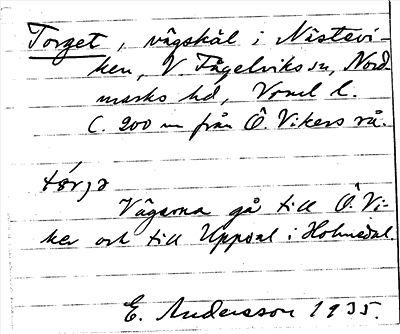 Torget, vägskäl i Nästevi-
ken, V Fågelviks sn, Nord
marks hd, Vrml l.
C. 200 m från Ö. Vikers rå.
Vägarna gå till Ö. Vi-
ker och till Uppsal i Holmedal.
E. Andersson 1935.